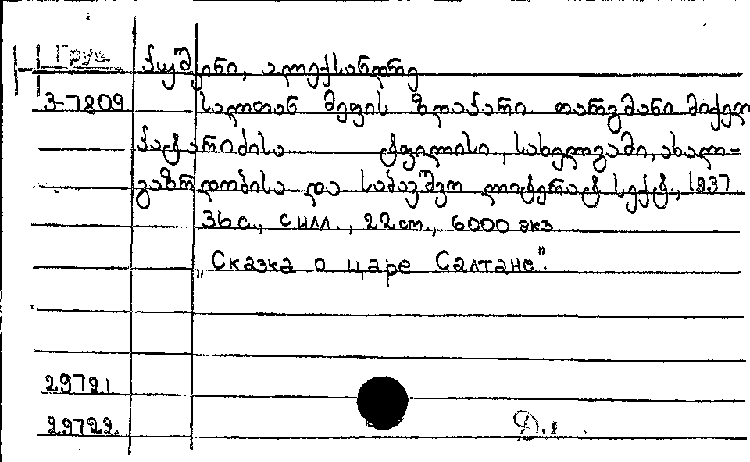 Груз.
პუშკინი, ალექსანდრე
3-7209 სალთან მეფის ზღაპარი თარგმანი მიქელ
პატარიძისა ტფილისი, სახელგამი, ახალ-
გაზრდობისა და საბავშვო ლიტერატ სექტ., 1937
36 с., с илл., 22 cm., 6000 экз
„Сказка о царе Салтане".
29721
29722.